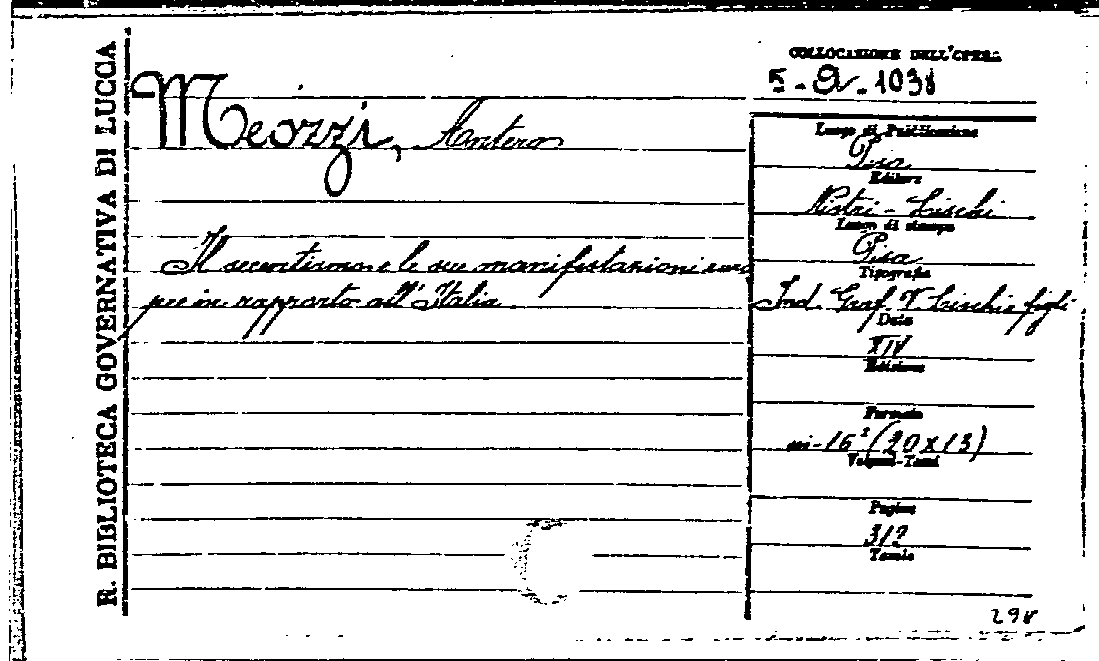 R. BIBLIOTECA GOVERNATIVA DI LUCCA
COLLOCAZIONE DELL'OPERA
5-D-1038
Meozzi, Antero
Il secentismo e le sue manifestazioni euro
pee in rapporto all'Italia
Luogo di Pubblicazione
Pisa
Editore
Nistri-Lischi
Luogo di stampa
Pisa
Tipografia
Ind. Graf. V. Lischi e figli
Data
XIV
Edizione
Formato
in-16° (20x13)
Volumi-Tomi
Pagine
Tavole
298